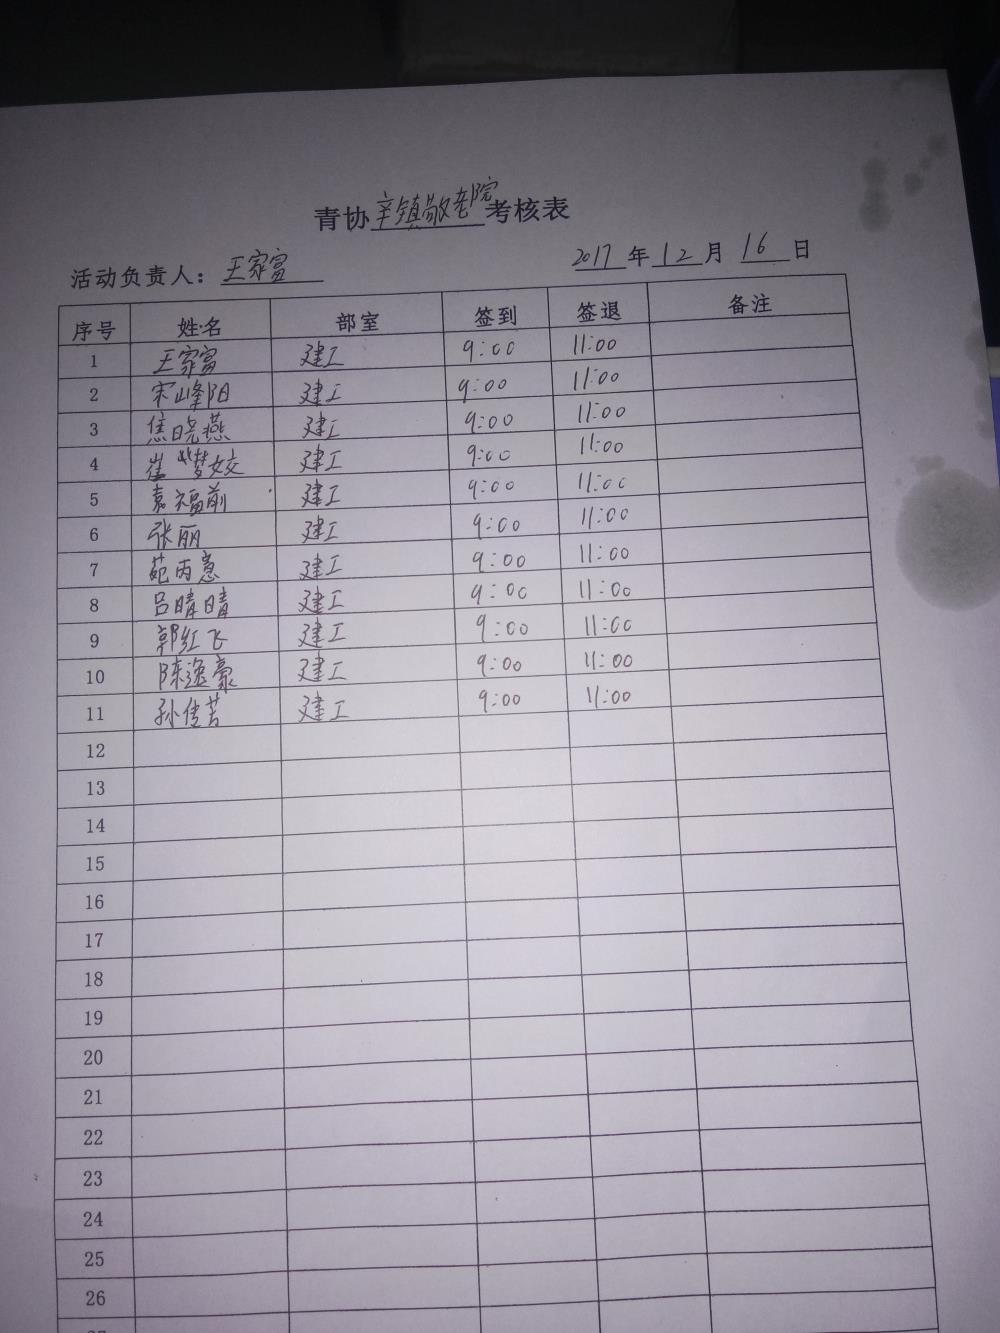 青协辛镇敬老院考核表
活动负责人：王家富 2017年12月16日
序号 姓名 部室 签到 签退 备注
1 王家富 建工 9:00 11:00
2 宋峰阳 建工 9:00 11:00
3 焦晓燕 建工 9:00 11:00
4 崔梦姣 建工 9:00 11:00
5 袁福前 建工 9:00 11:00
6 张丽 建工 9:00 11:00
7 苑丙慧 建工 9:00 11:00
8 吕晴晴 建工 9:00 11:00
9 郭红飞 建工 9:00 11:00
10 陈逸豪 建工 9:00 11:00
11 孙传 建工 9:00 11:00
12
13
14
15
16
17
18
19
20
21
22
23
24
25
26